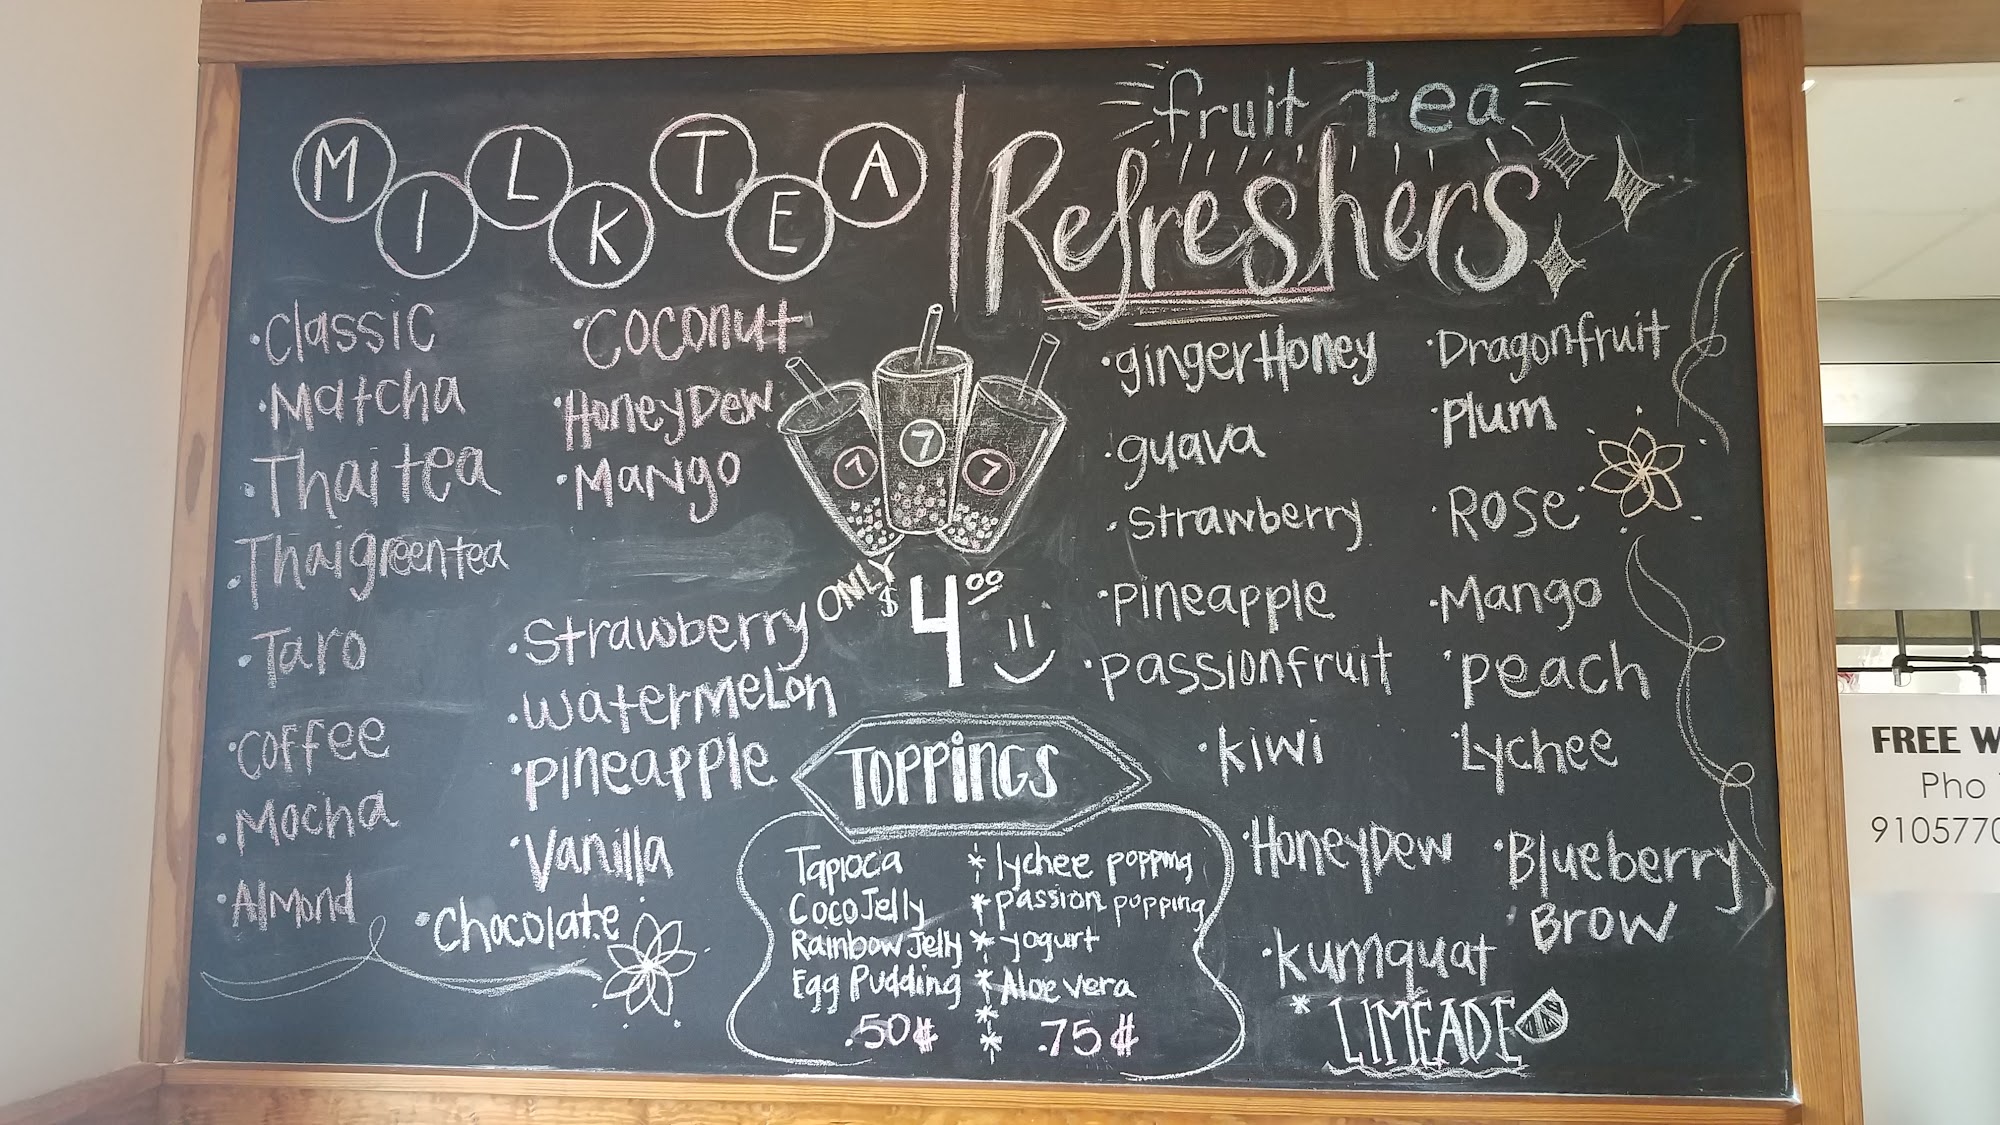 MILK TEA
• Classic
• Matcha
• Thai tea
• Thai green tea
• Taro
• Coffee
• Mocha
• Almond
• Coconut
• HoneyDew
• Mango
• Strawberry
• Watermelon
• Pineapple
• Vanilla
• Chocolate
7
7
7
ONLY
$4.00
TOPPINGS
Tapioca
Coco Jelly
Rainbow Jelly
Egg Pudding
.50¢
* lychee popping
* passion popping
* yogurt
* Aloe vera
*
* .75¢
fruit tea
Refreshers
• ginger Honey
• guava
• Strawberry
• Pineapple
• passionfruit
• kiwi
• HoneyDew
• kumquat
* LIMEADE
• Dragonfruit
• Plum
• Rose
• Mango
• peach
• Lychee
• Blueberry
• Brow
FREE W
Pho
910577